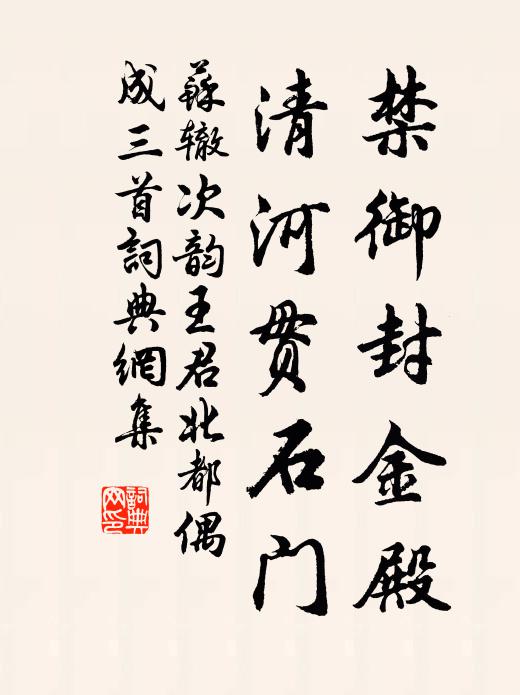 禁御封金殿
清河贯石门
蘇辙次韵王君北都偶
成三首詞典網集
詞典
网印